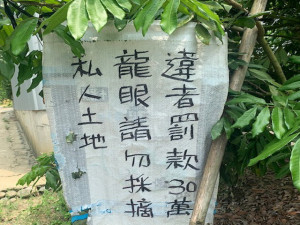 私人土地
龍眼請勿採摘
違者罰款30萬